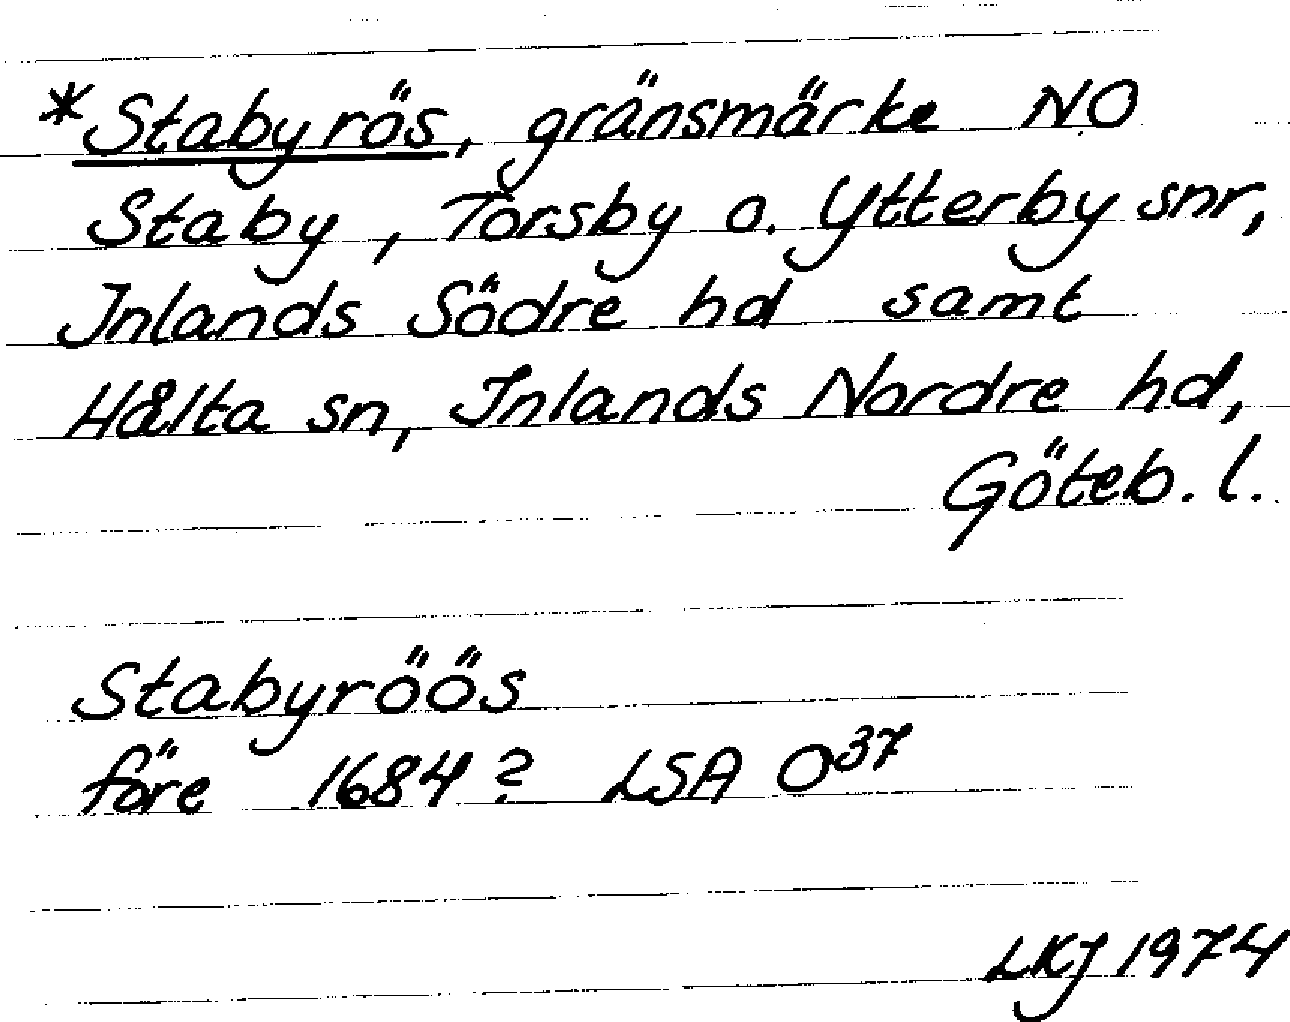 *Stabyrös, gränsmärke NO
Staby, Torsby o. Ytterby snr,
Inlands Södre hd samt
Hålta sn, Inlands Nordre hd,
Göteb. l.
Stabyröös
före 1684? LSA O³⁷
LKJ 1974